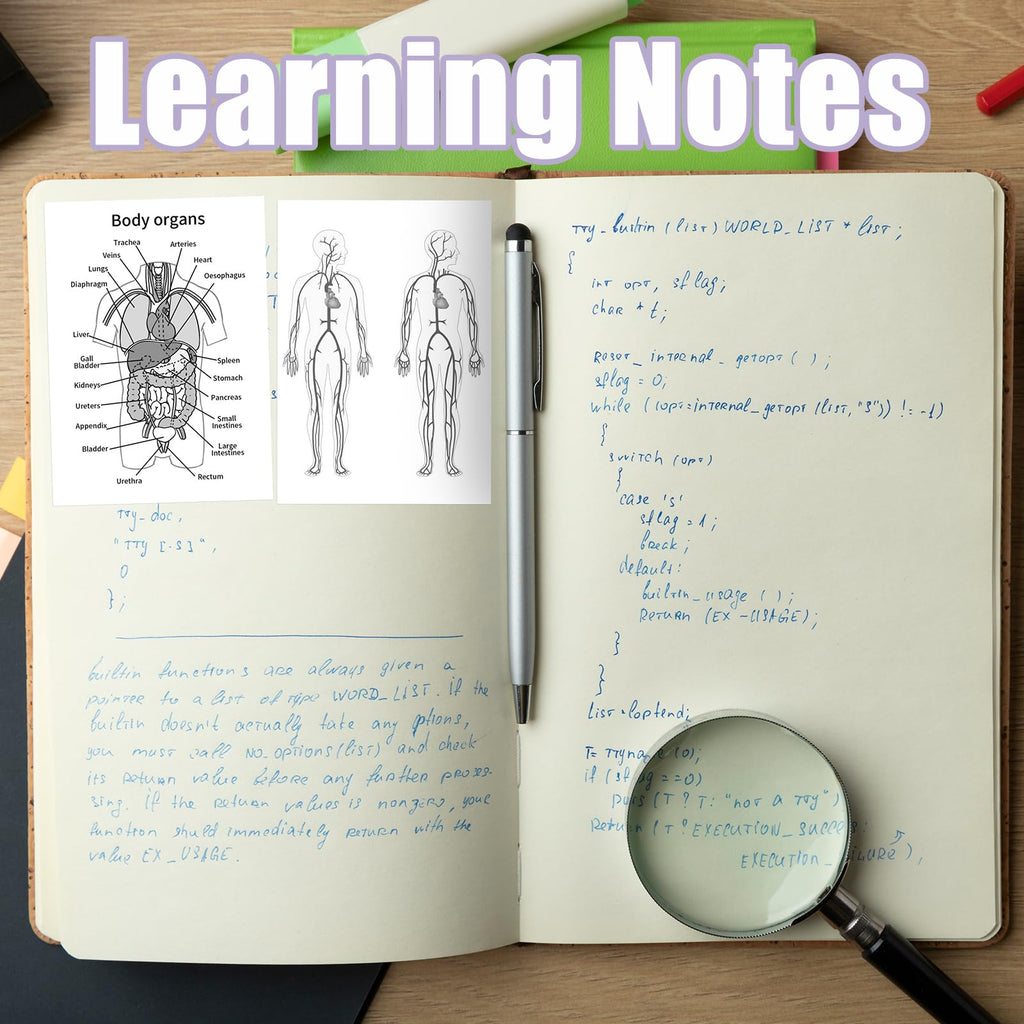 Learning Notes
Body organs
Trachea
Arteries
Veins
Heart
Lungs
Oesophagus
Diaphragm
Liver
Gall
Bladder
Spleen
Stomach
Kidneys
Pancreas
Ureters
Small
Inestines
Appendix
Large
Intestines
Bladder
Urethra
Rectum
tty_doc,
"tty [-s]",
0
};
builtin functions are always given a
pointer to a list of type WORD_LIST. if the
builtin doesn't actually take any ptions,
you must call no_options(list) and check
its return value before any further proses-
sing. if the return values is nonzero, your
function shuld immediately return with the
value EX_USAGE.
tty_builtin (list) WORLD_LIST * list;
{
int opt, sflag;
char * t;
Reset_internal_getopt ( );
sflag = 0;
while ((opt=internal_getopt (list, "s")) != -1)
{
switch (opt)
{
case 's'
sflag = 1;
break;
default:
builtin_usage ( );
Return (EX-USAGE);
}
}
list = loptend;
T= ttyname (0);
if (sflag ==0)
puts (T ? T: "not a tty")
Return (T ? EXECUTION_SUCCESS:
EXECUTION_FAILURE);